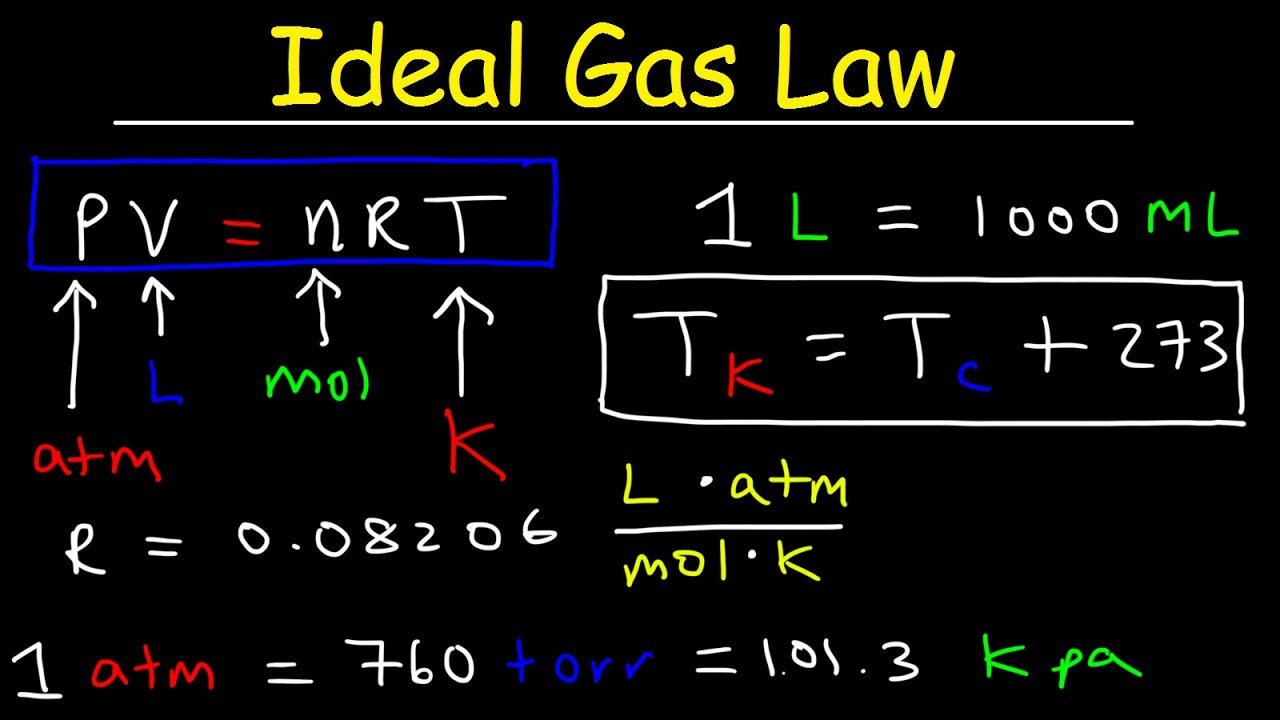 Ideal Gas Law
PV = nRT
atm
L
mol
K
1 L = 1000 mL
TK = TC + 273
R = 0.08206 L · atm
mol · K
1 atm = 760 torr = 101.3 Kpa